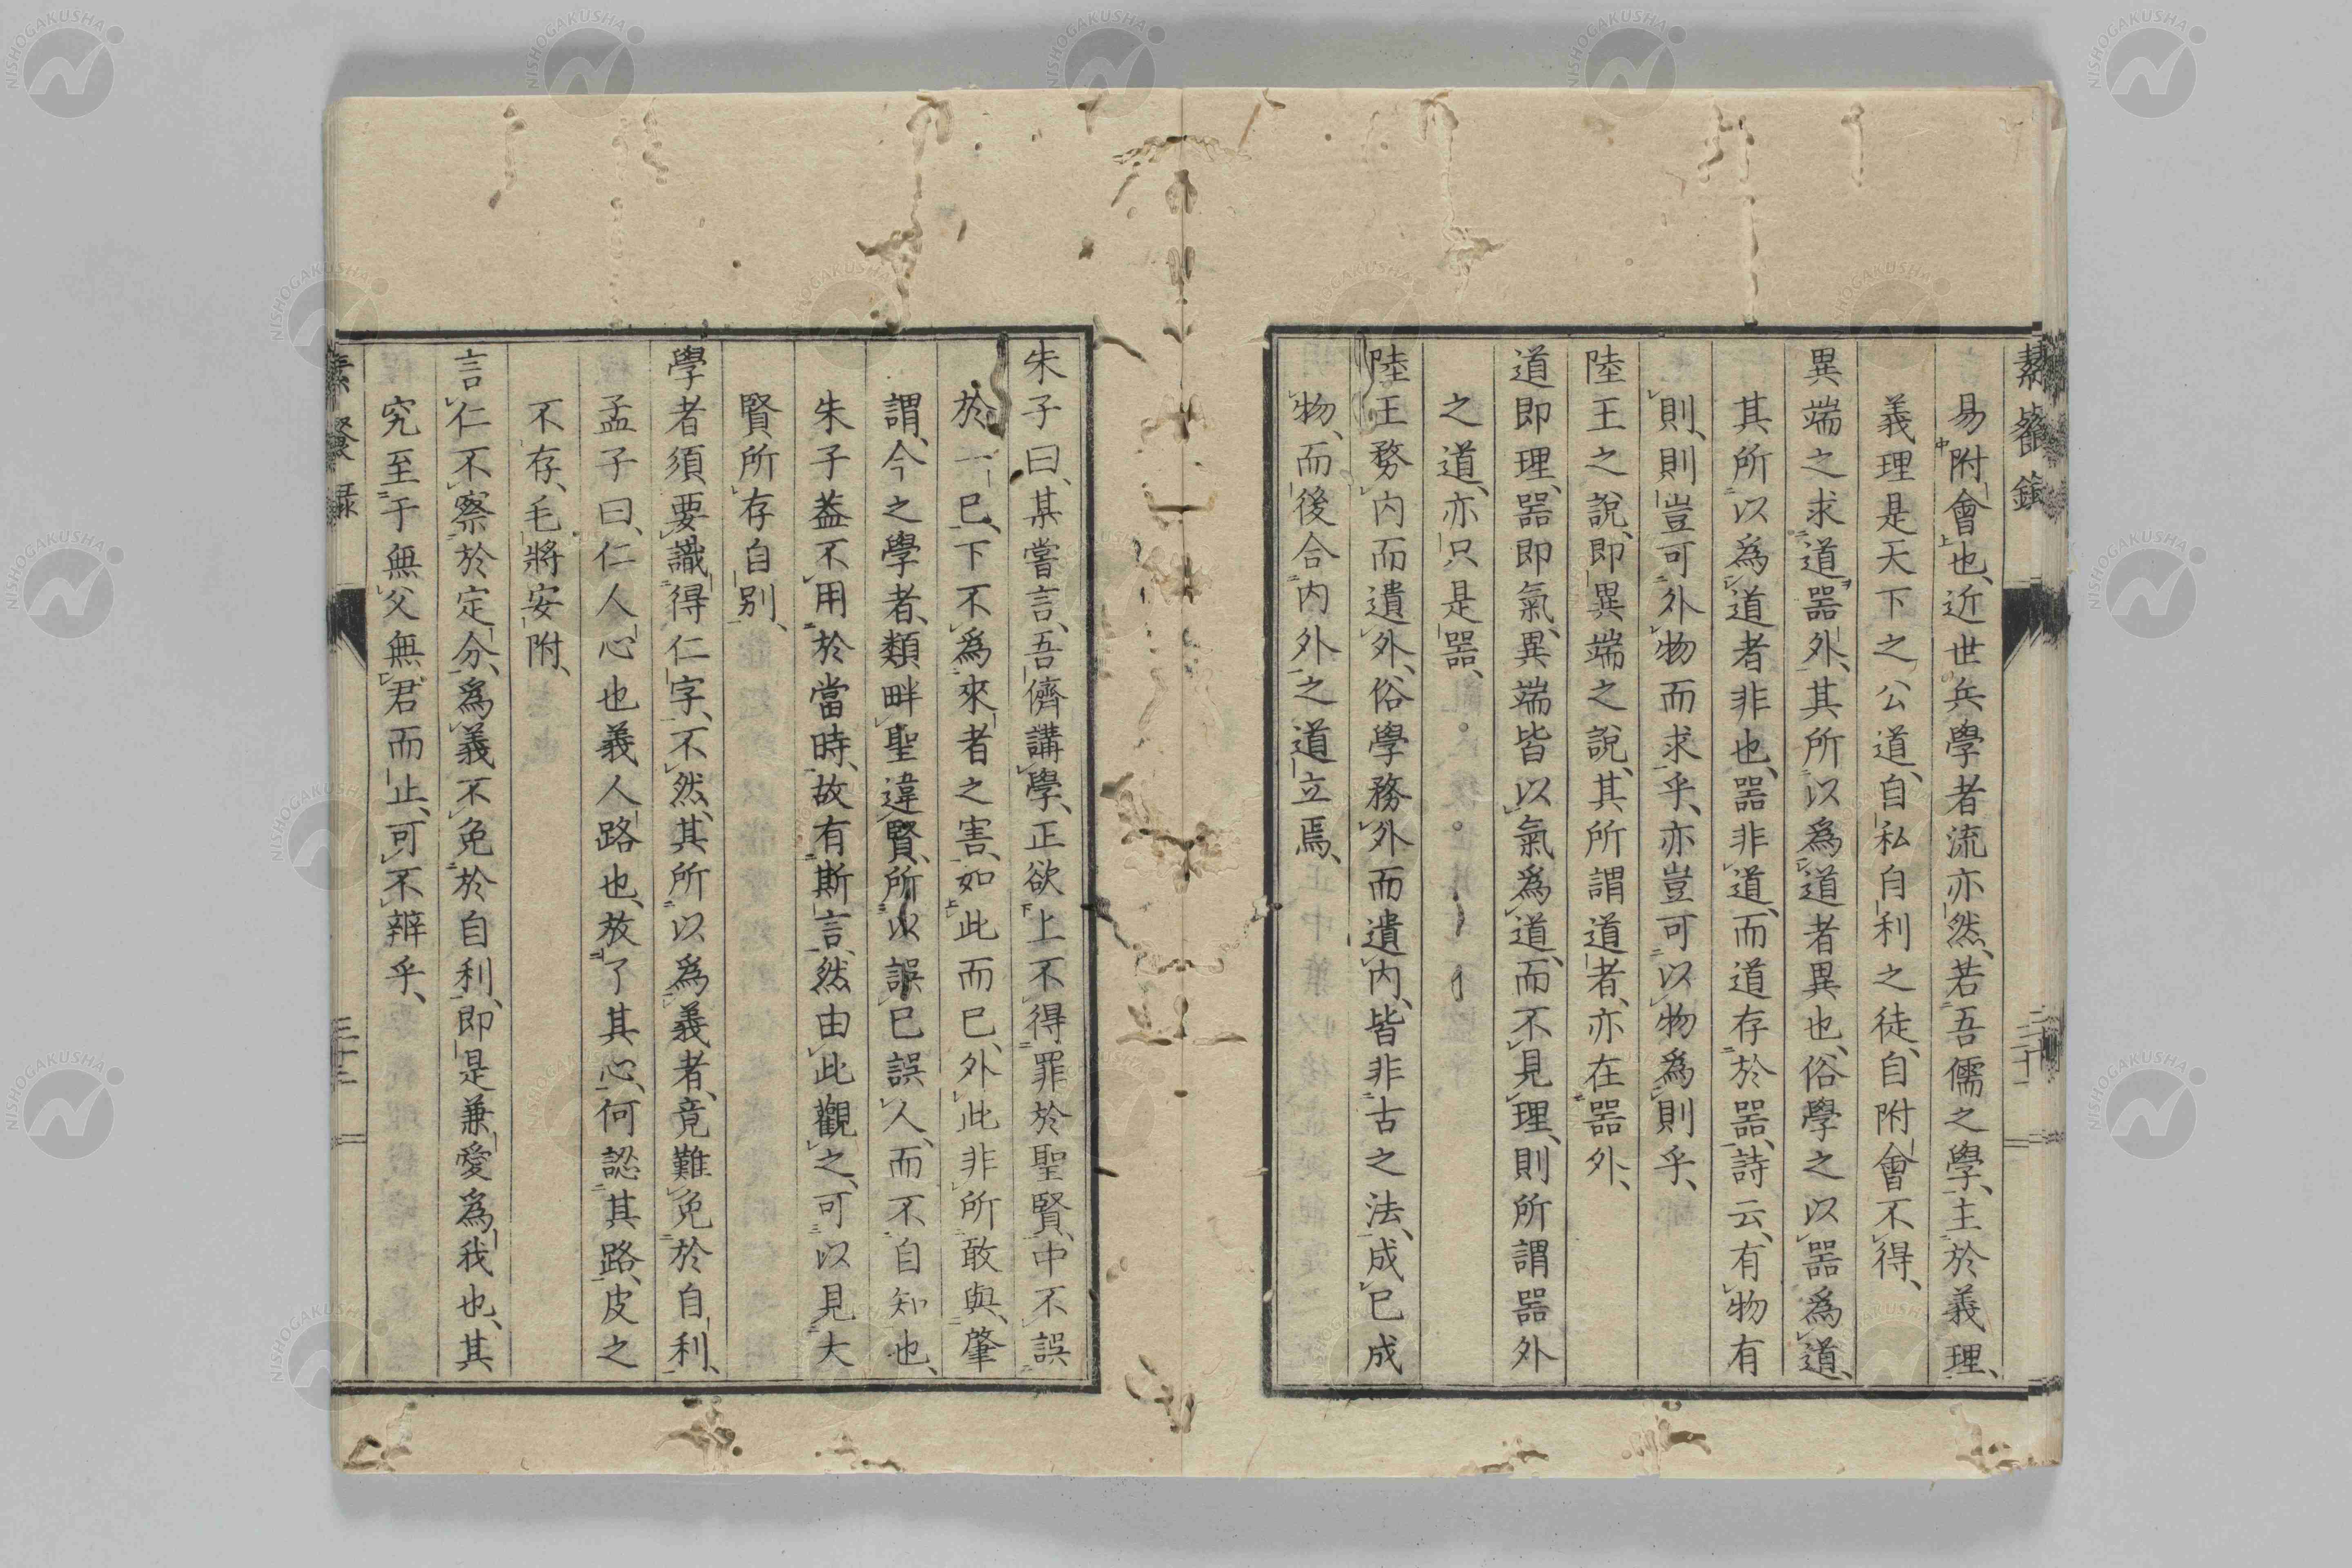 易附會也、近世兵學者流亦然、若吾儒之學、主於義理、
義理是天下之公道、自私自利之徒、自附會不得、
異端之求道器外、其所以爲道者異也、俗學之以器爲道、
其所以爲道者非也、器非道、而道存於器、詩云、有物有
則、則豈可外物而求乎、亦豈可以物爲則乎、
陸王之說、即異端之說、其所謂道者、亦在器外、
道即理、器即氣、異端皆以氣爲道、而不見理、則所謂器外
之道、亦只是器、
陸王務內而遺外、俗學務外而遺內、皆非古之法、成已成
物、而後合內外之道立焉、
三十一
朱子曰、某嘗言、吾儕講學、正欲上不得罪於聖賢、中不誤
於一已、下不爲來者之害、如此而已、外此非所敢與、肇
謂、今之學者、類畔聖違賢、所以誤已誤人、而不自知也、
朱子葢不用於當時、故有斯言、然由此觀之、可以見大
賢所存自別、
學者須要識得仁字、不然、其所以爲義者、竟難免於自利、
孟子曰、仁人心也義人路也、放了其心、何認其路、皮之
不存、毛將安附、
言仁不察於定分、爲義不免於自利、即是兼愛爲我也、其
究至于無父無君而止、可不辨乎、
NISHOGAKUSHA